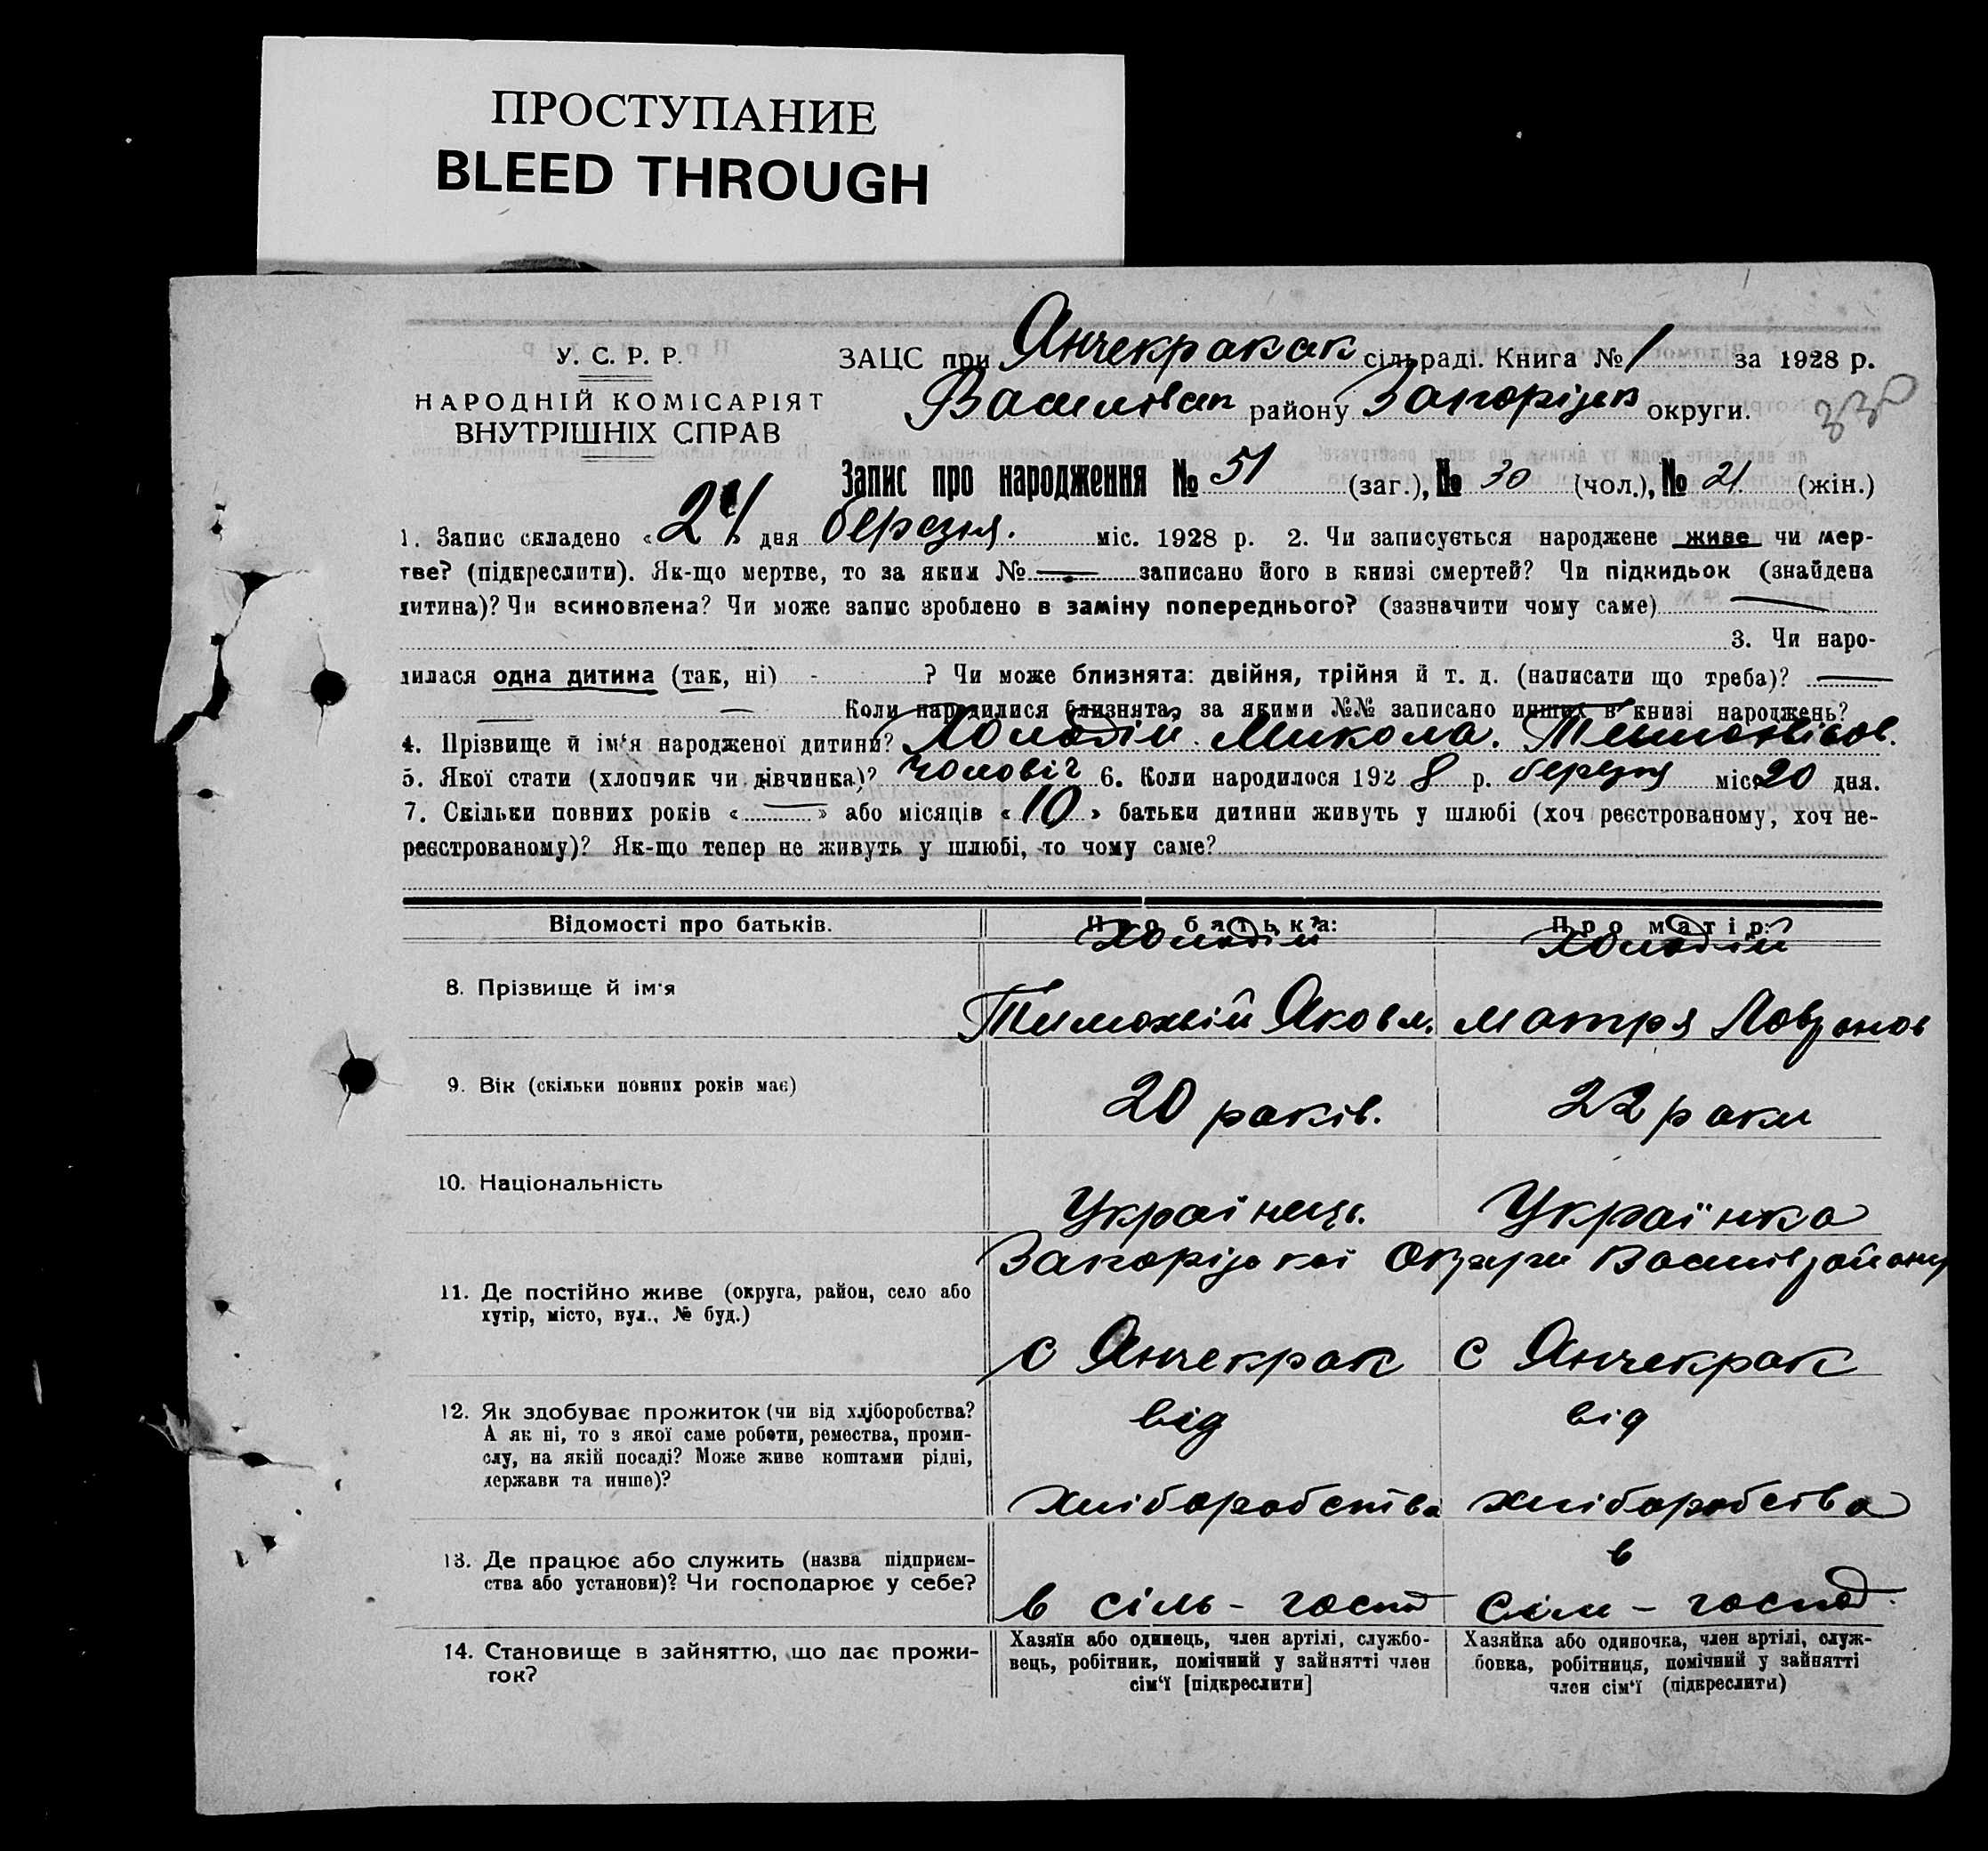 ПРОСТУПАНИЕ
BLEED THROUGH
У. С. Р. Р.
НАРОДНІЙ КОМІСАРІЯТ
ВНУТРІШНІХ СПРАВ
ЗАЦС при Янчекракак сільраді. Книга № 1 за 1928 р.
району Запоріжк округи.
330
Запис про народження № 51 (заг.), № 30 (чол.), № 21 (жін.)
1. Запис складено « 24 » дня березня. міс. 1928 р. 2. Чи записується народжене живе чи мер-
тве? (підкреслити). Як-що мертве, то за яким № — записано його в книзі смертей? Чи підкидьок (знайдена
дитина)? Чи всиновлена? Чи може запис зроблено в заміну попереднього? (зазначити чому саме) —
3. Чи наро-
дилася одна дитина (так, ні) - ? Чи може близнята: двійня, трійня й т. д. (написати що треба)? —
— — Коли народилися близнята, за якими №№ записано инших в книзі народжень?
4. Прізвище й ім‘я народженої дитини? Холодій. Микола.
5. Якої стати (хлопчик чи дівчинка)? чоловіч 6. Коли народилося 1928 р. березня міс. 20 дня.
7. Скільки повних років « — » або місяців « 10 » батьки дитини живуть у шлюбі (хоч реєстрованому, хоч не-
реєстрованому)? Як-що тепер не живуть у шлюбі, то чому саме?
Відомості про батьків. Про батька: Про матір:
Холодій Холодій
8. Прізвище й ім‘я
Тимохвій Яковл. Матря
9. Вік (скільки повних років має)
20 років. 22 роки
10. Національність
Українець. Українка
Запоріжкої Округи Василіврайону
11. Де постійно живе (округа, район, село або
хутір, місто, вул., № буд.)
с Янчекрак с Янчекрак
12. Як здобуває прожиток (чи від хліборобства?
А як ні, то з якої саме роботи, ремества, проми-
слу, на якій посаді? Може живе коштами рідні,
держави та инше)?
від від
хліборобства хліборобства
13. Де працює або служить (назва підприєм-
ства або установи)? Чи господарює у себе?
в
в сіль - господ сіль - господ.
14. Становище в зайняттю, що дає прожи-
ток?
Хазяїн або одинець, член артілі, службо-
вець, робітник, помічний у зайнятті член
сім‘ї [підкреслити]
Хазяйка або одиночка, член артілі, служ-
бовка, робітниця, помічний у зайнятті
член сім‘ї (підкреслити)